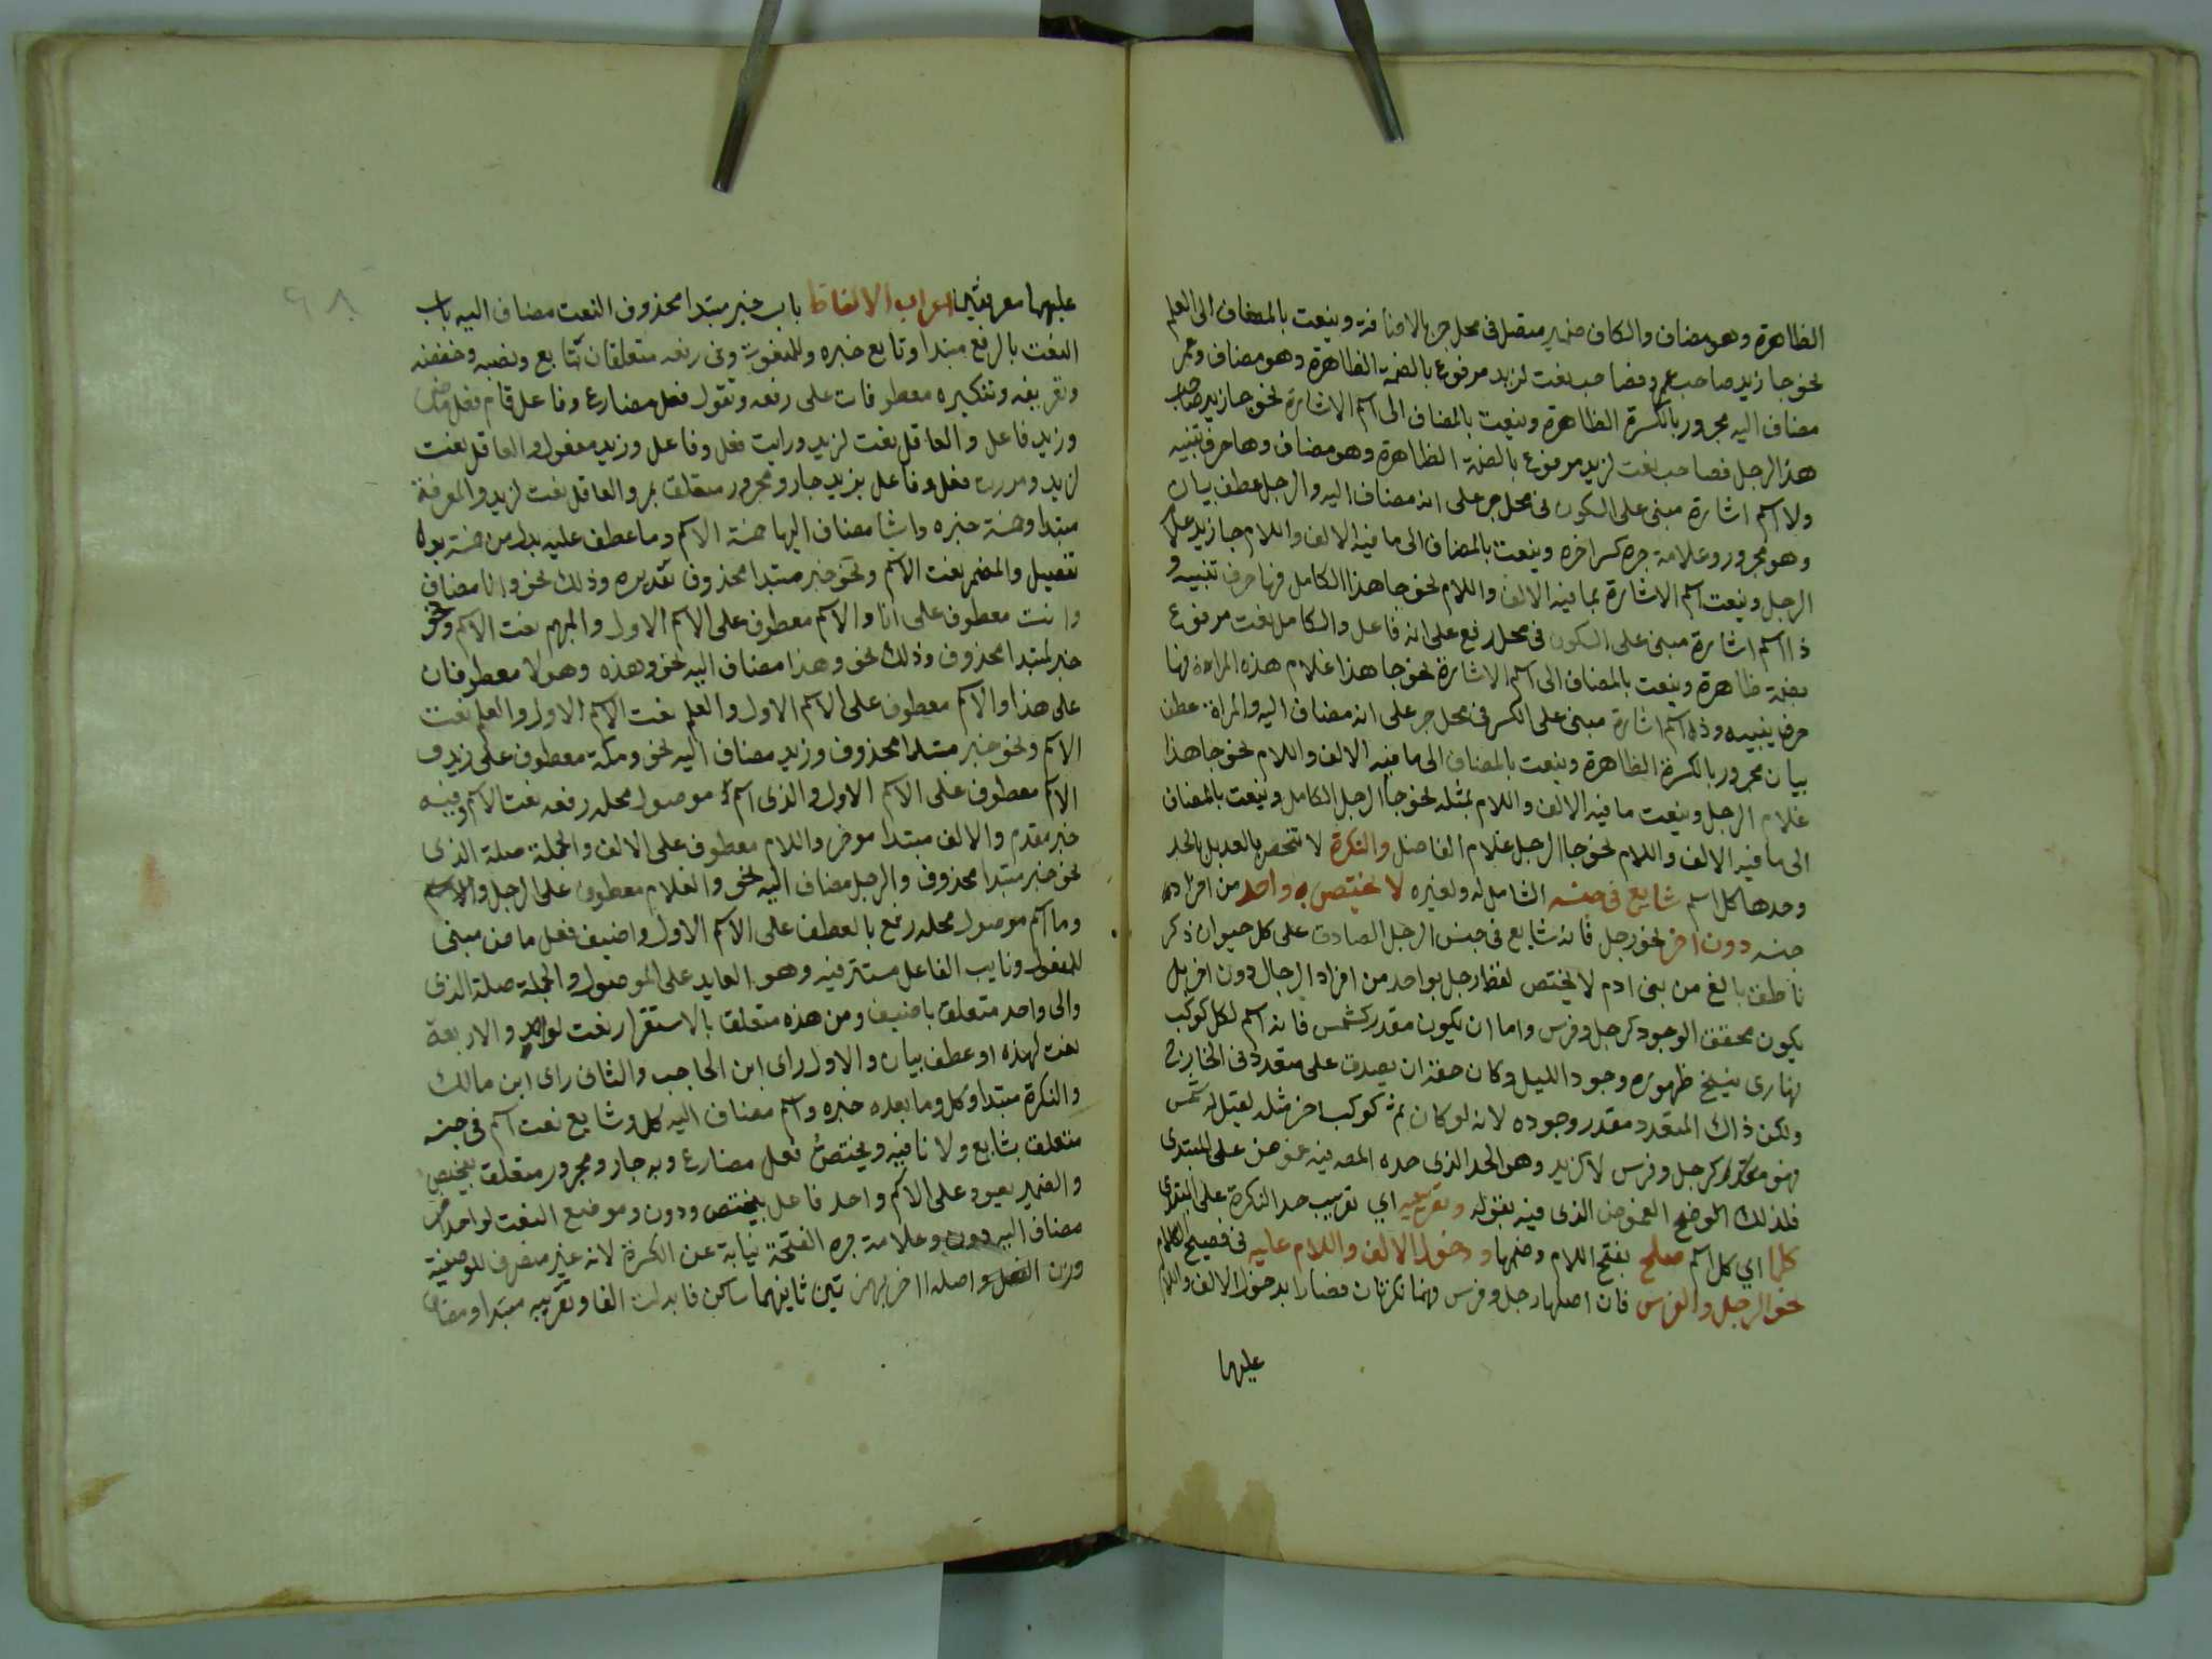 الظاهرة وهو مضاف والكاف ضمير متصل فى محل جر بالاضافة وينعت بالمضاف الى العلم
نحو جا زيد صاحب عمرو فصاحب نعت لزيد مرفوع بالضمة الظاهرة وهو مضاف وعمر
مضاف اليه مجرور بالكسرة الظاهرة وينعت بالمضاف الى اسم الاشارة نحو جا زيد صاحب
هذا الرجل فصاحب نعت لزيد مرفوع بالضمة الظاهرة وهو مضاف وها حرف تنبيه
ولا اسم اشارة مبنى على السكون فى محل جر على انه مضاف اليه والرجل عطف بيان
وهو مجرور وعلامة جره كسر اخره وينعت بالمضاف الى ما فيه الالف واللام جا زيد غلام
الرجل وينعت اسم الاشارة بما فيه الالف واللام نحو جا هذا الكامل فها حرف تنبيه و
ذا اسم اشارة مبنى على السكون فى محل رفع على انه فاعل والكامل نعت مرفوع
بضمة ظاهرة وينعت بالمضاف الى اسم الاشارة نحو جا هذا غلام هذه المراة فها
حرف تنبيه وذه اسم اشارة مبنى على الكسر فى محل جر على انه مضاف اليه والمراة عطف
بيان مجرور بالكسرة الظاهرة وينعت بالمضاف الى ما فيه الالف واللام نحو جا هذا
غلام الرجل وينعت ما فيه الالف واللام بمثله نحو جا الرجل الكامل وينعت بالمضاف
الى ما فيه الالف واللام نحو جا الرجل غلام الفاضل والنكرة لا تنحصر بالعد بل بالحد
وحدها كل اسم شايع فى جنسه الشامل له ولغيره لا يختص به واحد من افراد
جنسه دون اخر نحو رجل فانه شايع فى جنس الرجل الصادق على كل حيوان ذكر
ناطق بالغ من بنى ادم لا يختص لفظ رجل بواحد من افراد الرجال دون اخر بل
يكون محقق الوجود كرجل وفرس واما ان يكون مقدر كشمس فانه اسم لكل كوكب
نهارى ينسخ ظهوره وجود الليل وكان حقه ان يصدق على متعدد فى الخارج
ولكن ذاك المتعدد مقدر وجوده لانه لو كان ثم كوكب اخر مثله لقيل له شمس
فهو كرجل وفرس لا كزيد وهو الحد الذى حده المص فيه غموض على المبتدى
فلذلك الموضح الغموض الذى فيه بقوله وتقريبه اي تقريب حد النكرة على المبتدى
كلما اي كل اسم صلح بفتح اللام وضمها و دخول الالف واللام عليه فى فصيح الكلام
نحو الرجل والفرس فان اصلهما رجل وفرس فهما نكرتان فصارا بدخول الالف واللام
عليهما
٩٨
عليهما معرفتين اعراب الالفاظ باب خبر مبتدا محذوف النعت مضاف اليه باب
النعت بالرفع مبتدا وتابع خبره وللمنعوت وفى رفعه متعلقان بتابع ونصبه وخفضه
وتعريفه وتنكيره معطوفات على رفعه وتقول فعل مضارع وفاعل قام فعل ماضى
وزيد فاعل والعاقل نعت لزيد ورايت فعل وفاعل وزيد مفعول والعاقل نعت
لزيد ومررت فعل وفاعل بزيد جار ومجرور متعلق بمر والعاقل نعت لزيد والمعرفة
مبتدا وخمسة خبره واشيا مضاف اليها خمسة الاسم وما عطف عليه بدل من خمسة بدل
تفصيل والمضمر نعت الاسم ونحو خبر مبتدا محذوف تقديره وذلك نحو وانا مضاف
وانت معطوف على انا والاسم معطوف على الاسم الاول والمبهم نعت الاسم ونحو
خبر لمبتدا محذوف وذلك نحو وهذا مضاف اليه نحو وهذه وهولا معطوفان
على هذا والاسم معطوف على الاسم الاول والعلم نعت الاسم الاول والعلم نعت
الاسم ونحو خبر مبتدا محذوف وزيد مضاف اليه نحو ومكة معطوف على زيد و
الاسم معطوف على الاسم الاول والذى اسم موصول محله رفعه نعت الاسم وفيه
خبر مقدم والالف مبتدا موخر واللام معطوف على الالف والجملة صلة الذى
نحو خبر مبتدا محذوف والرجل مضاف اليه نحو والغلام معطوف على الرجل والاسم
وما اسم موصول محله رفع بالعطف على الاسم الاول واضيف فعل ماض مبنى
للمفعول ونايب الفاعل مستتر فيه وهو العايد على الموصول والجملة صلة الذى
والى واحد متعلق باضيف ومن هذه متعلق بالاستقرار نعت لواحد والاربعة
نعت لهذه او عطف بيان والاول راى ابن الحاجب والثانى راى ابن مالك
والنكرة مبتدا وكل وما بعده خبره واسم مضاف اليه كل وشايع نعت اسم فى جنسه
متعلق بشايع ولا نافيه ويختص فعل مضارع وبه جار ومجرور متعلق بيختص
والضمير يعود على الاسم واحد فاعل بيختص ودون وموضع النعت لواحد
مضاف اليه دون وعلامة جره الفتحة نيابة عن الكسرة لانه غير منصرف للوصفية
ووزن الفعل واصله ااخر بهمزتين ثانيهما ساكن فابدلت الفا وتقريبه مبتدا ومضاف